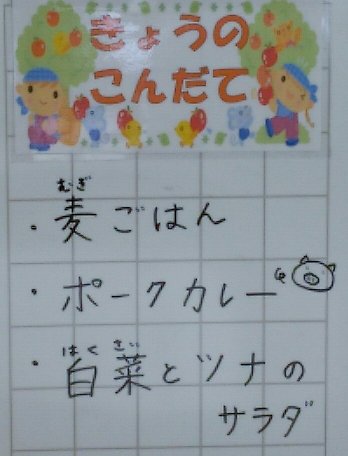 きょうの
こんだて
むぎ
・麦ごはん
・ポークカレー
はくさい
・白菜とツナの
サラダ